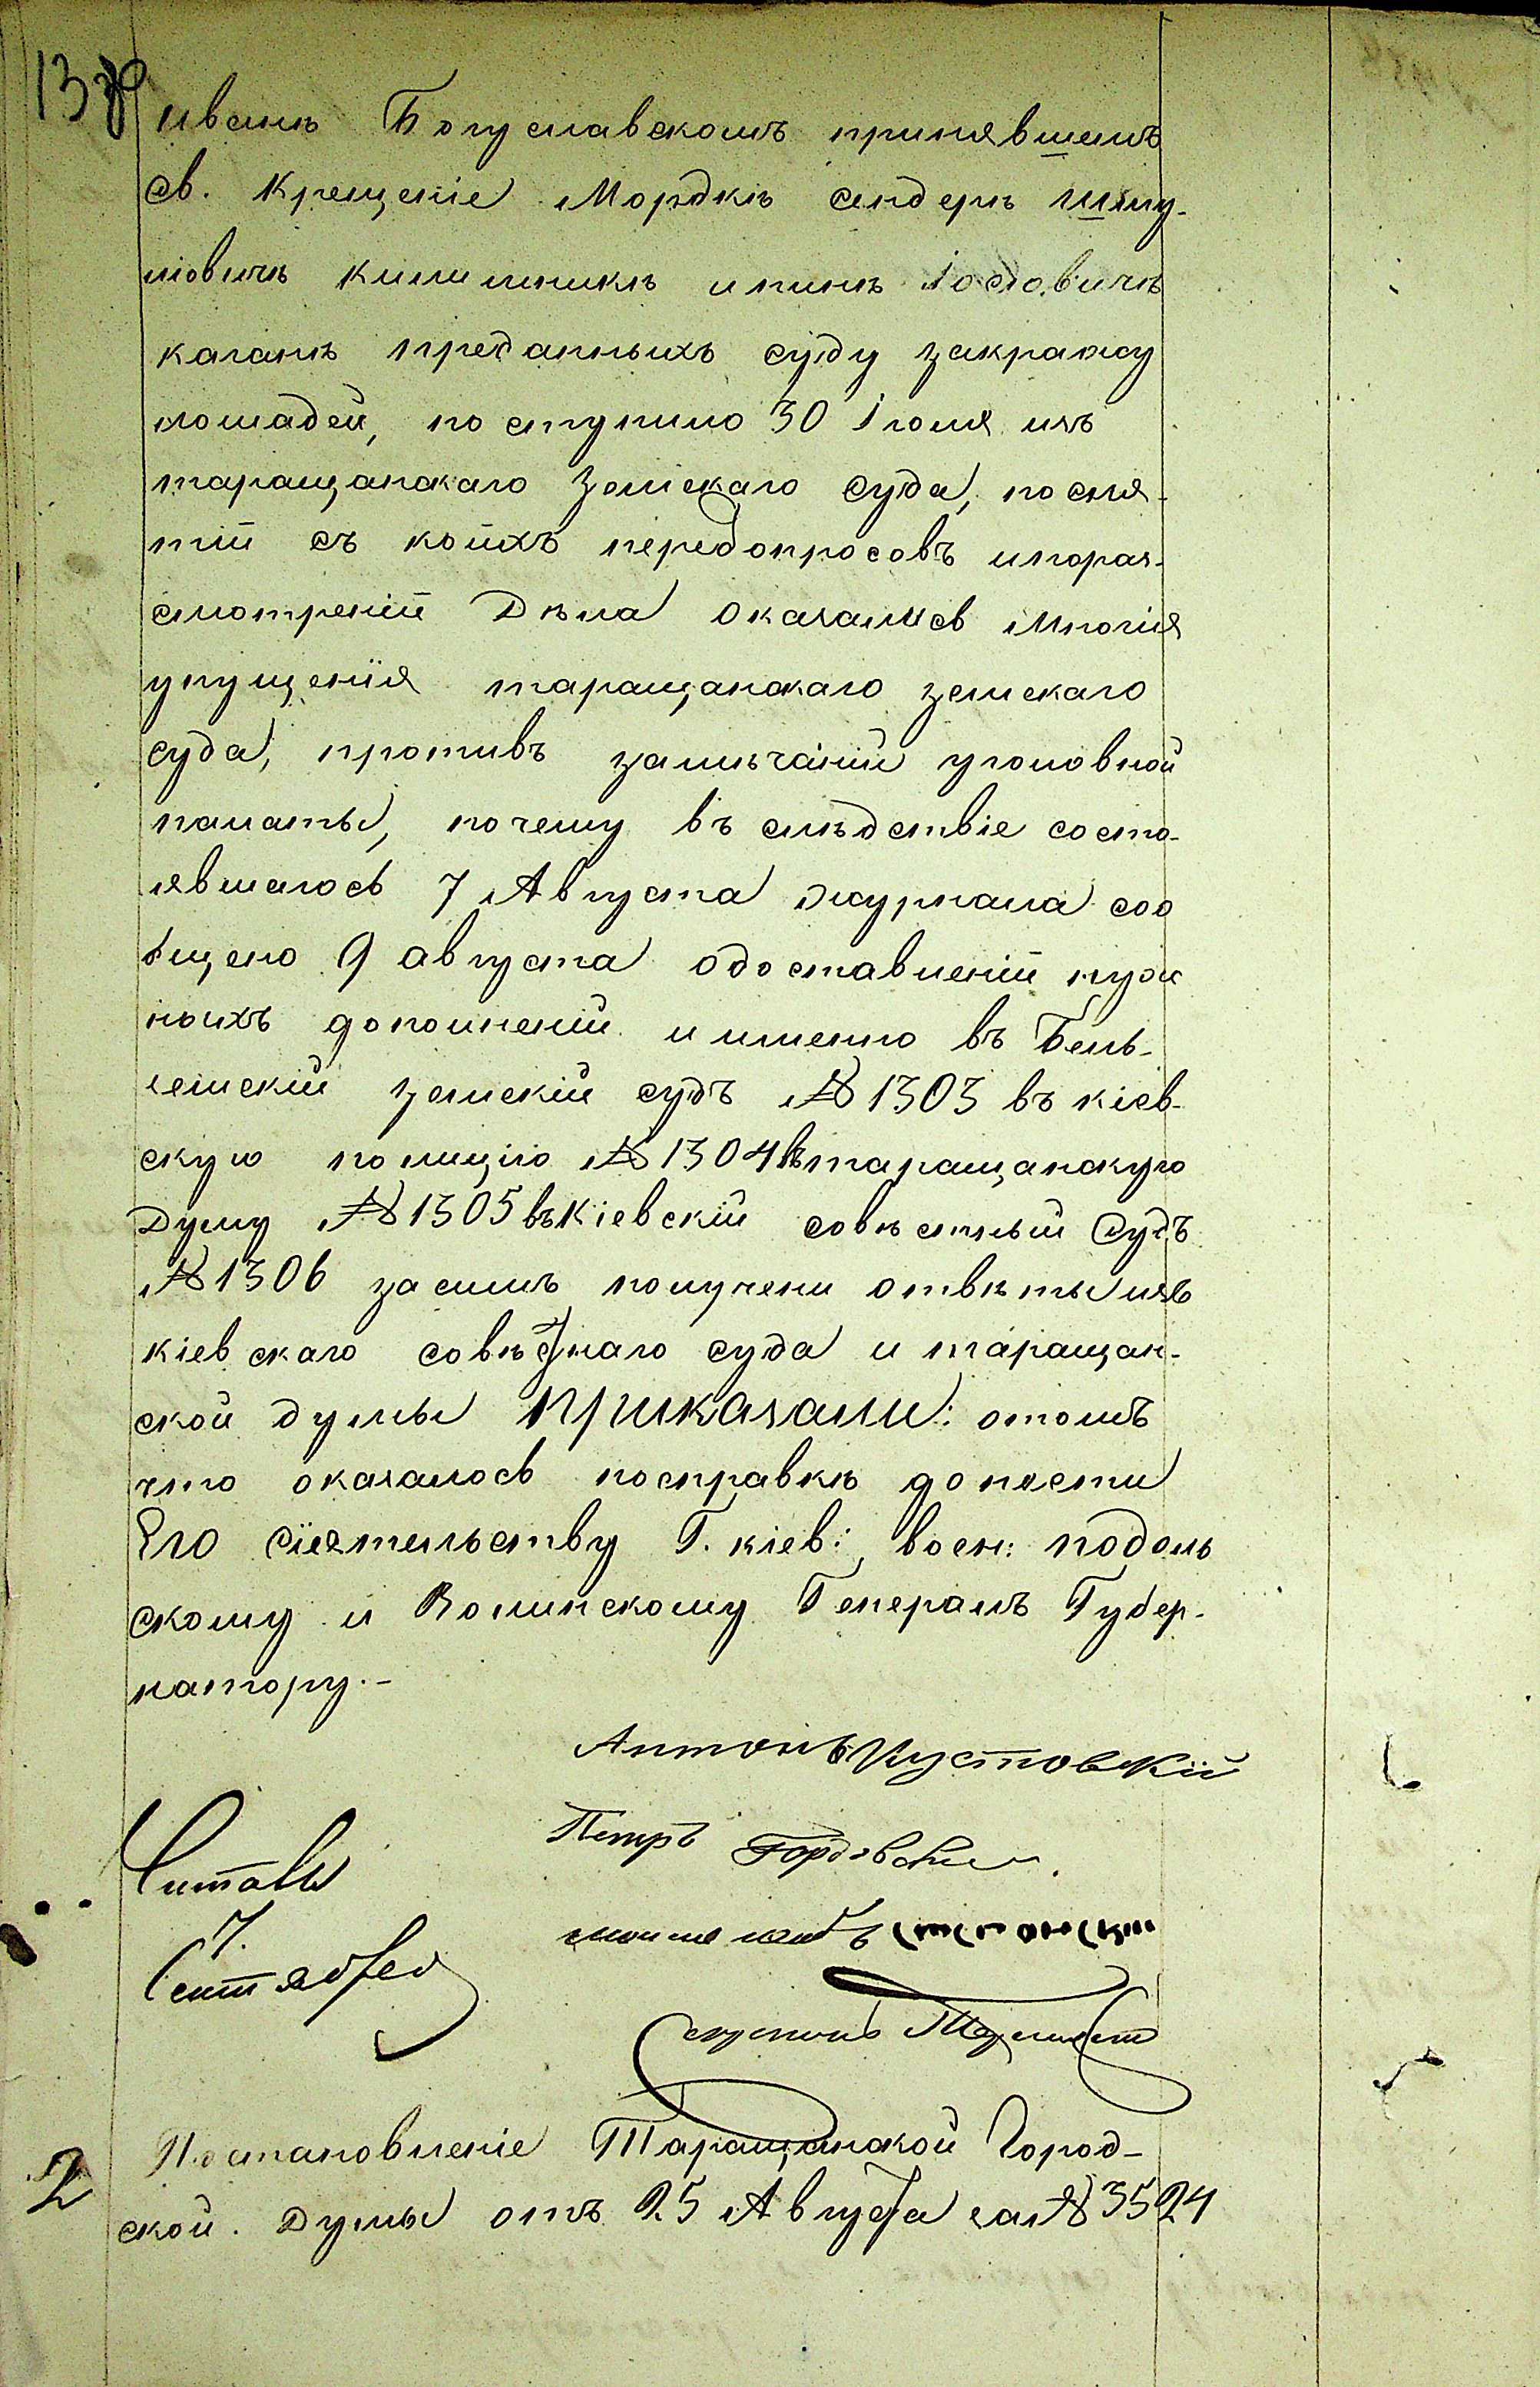 Ивань Богуславскомъ принявшемъ
св. Крещеніе Мордкъ Сендеръ Шму-
ловичъ Кишинникъ ипинъ Іосіовичъ
каганъ преданныхъ суду закражу
лошадей, поступило 30 Іюля изъ
таращанскаго Земскаго Суда, посня-
тіи съ коихъ передопросовъ ипораз-
смотреніи Дѣла оказались многія
упущенія таращанскаго земскаго
суда, противъ замѣчаній уголовной
палаты, почему въ слѣдствіе состо-
явшагось 7 Августа журнала соо
бщено 9 августа одоставленіи нуж
ныхъ дополненій и именно въ Бель-
земскій судъ № 1303 въ кіев-
скую полицію № 1304 въ таращанскую
Думу № 1305 въ Кіевскій совѣстный Судъ
№ 1306 засимъ получени отвѣты изъ
кіевскаго совѣстнаго суда и таращан-
ской думы Приказали: отомъ
что оказалось посправкѣ донести
Его сіятельству Г. кіев: воен: подоль
скому и Волинскому Генералъ Губер-
натору.-
Антонъ Пустовскій
Петръ Гордовскій
Читалъ
7 Сентября
Секретарь
2 Постановленіе Таращанской Город-
ской Думы отъ 25 Августа за № 3524